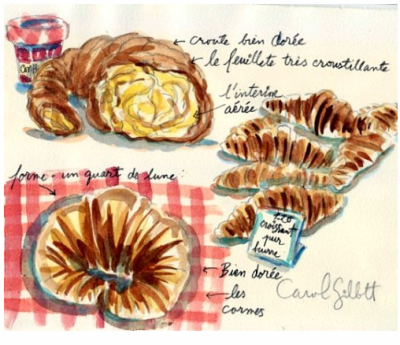 croute bien dorée
le feuilleté très croustillante
l'interior
aérée
forme - un quart de lune:
croissant
pur
burre
Bien dorée
les
cornes
Carol Gillott